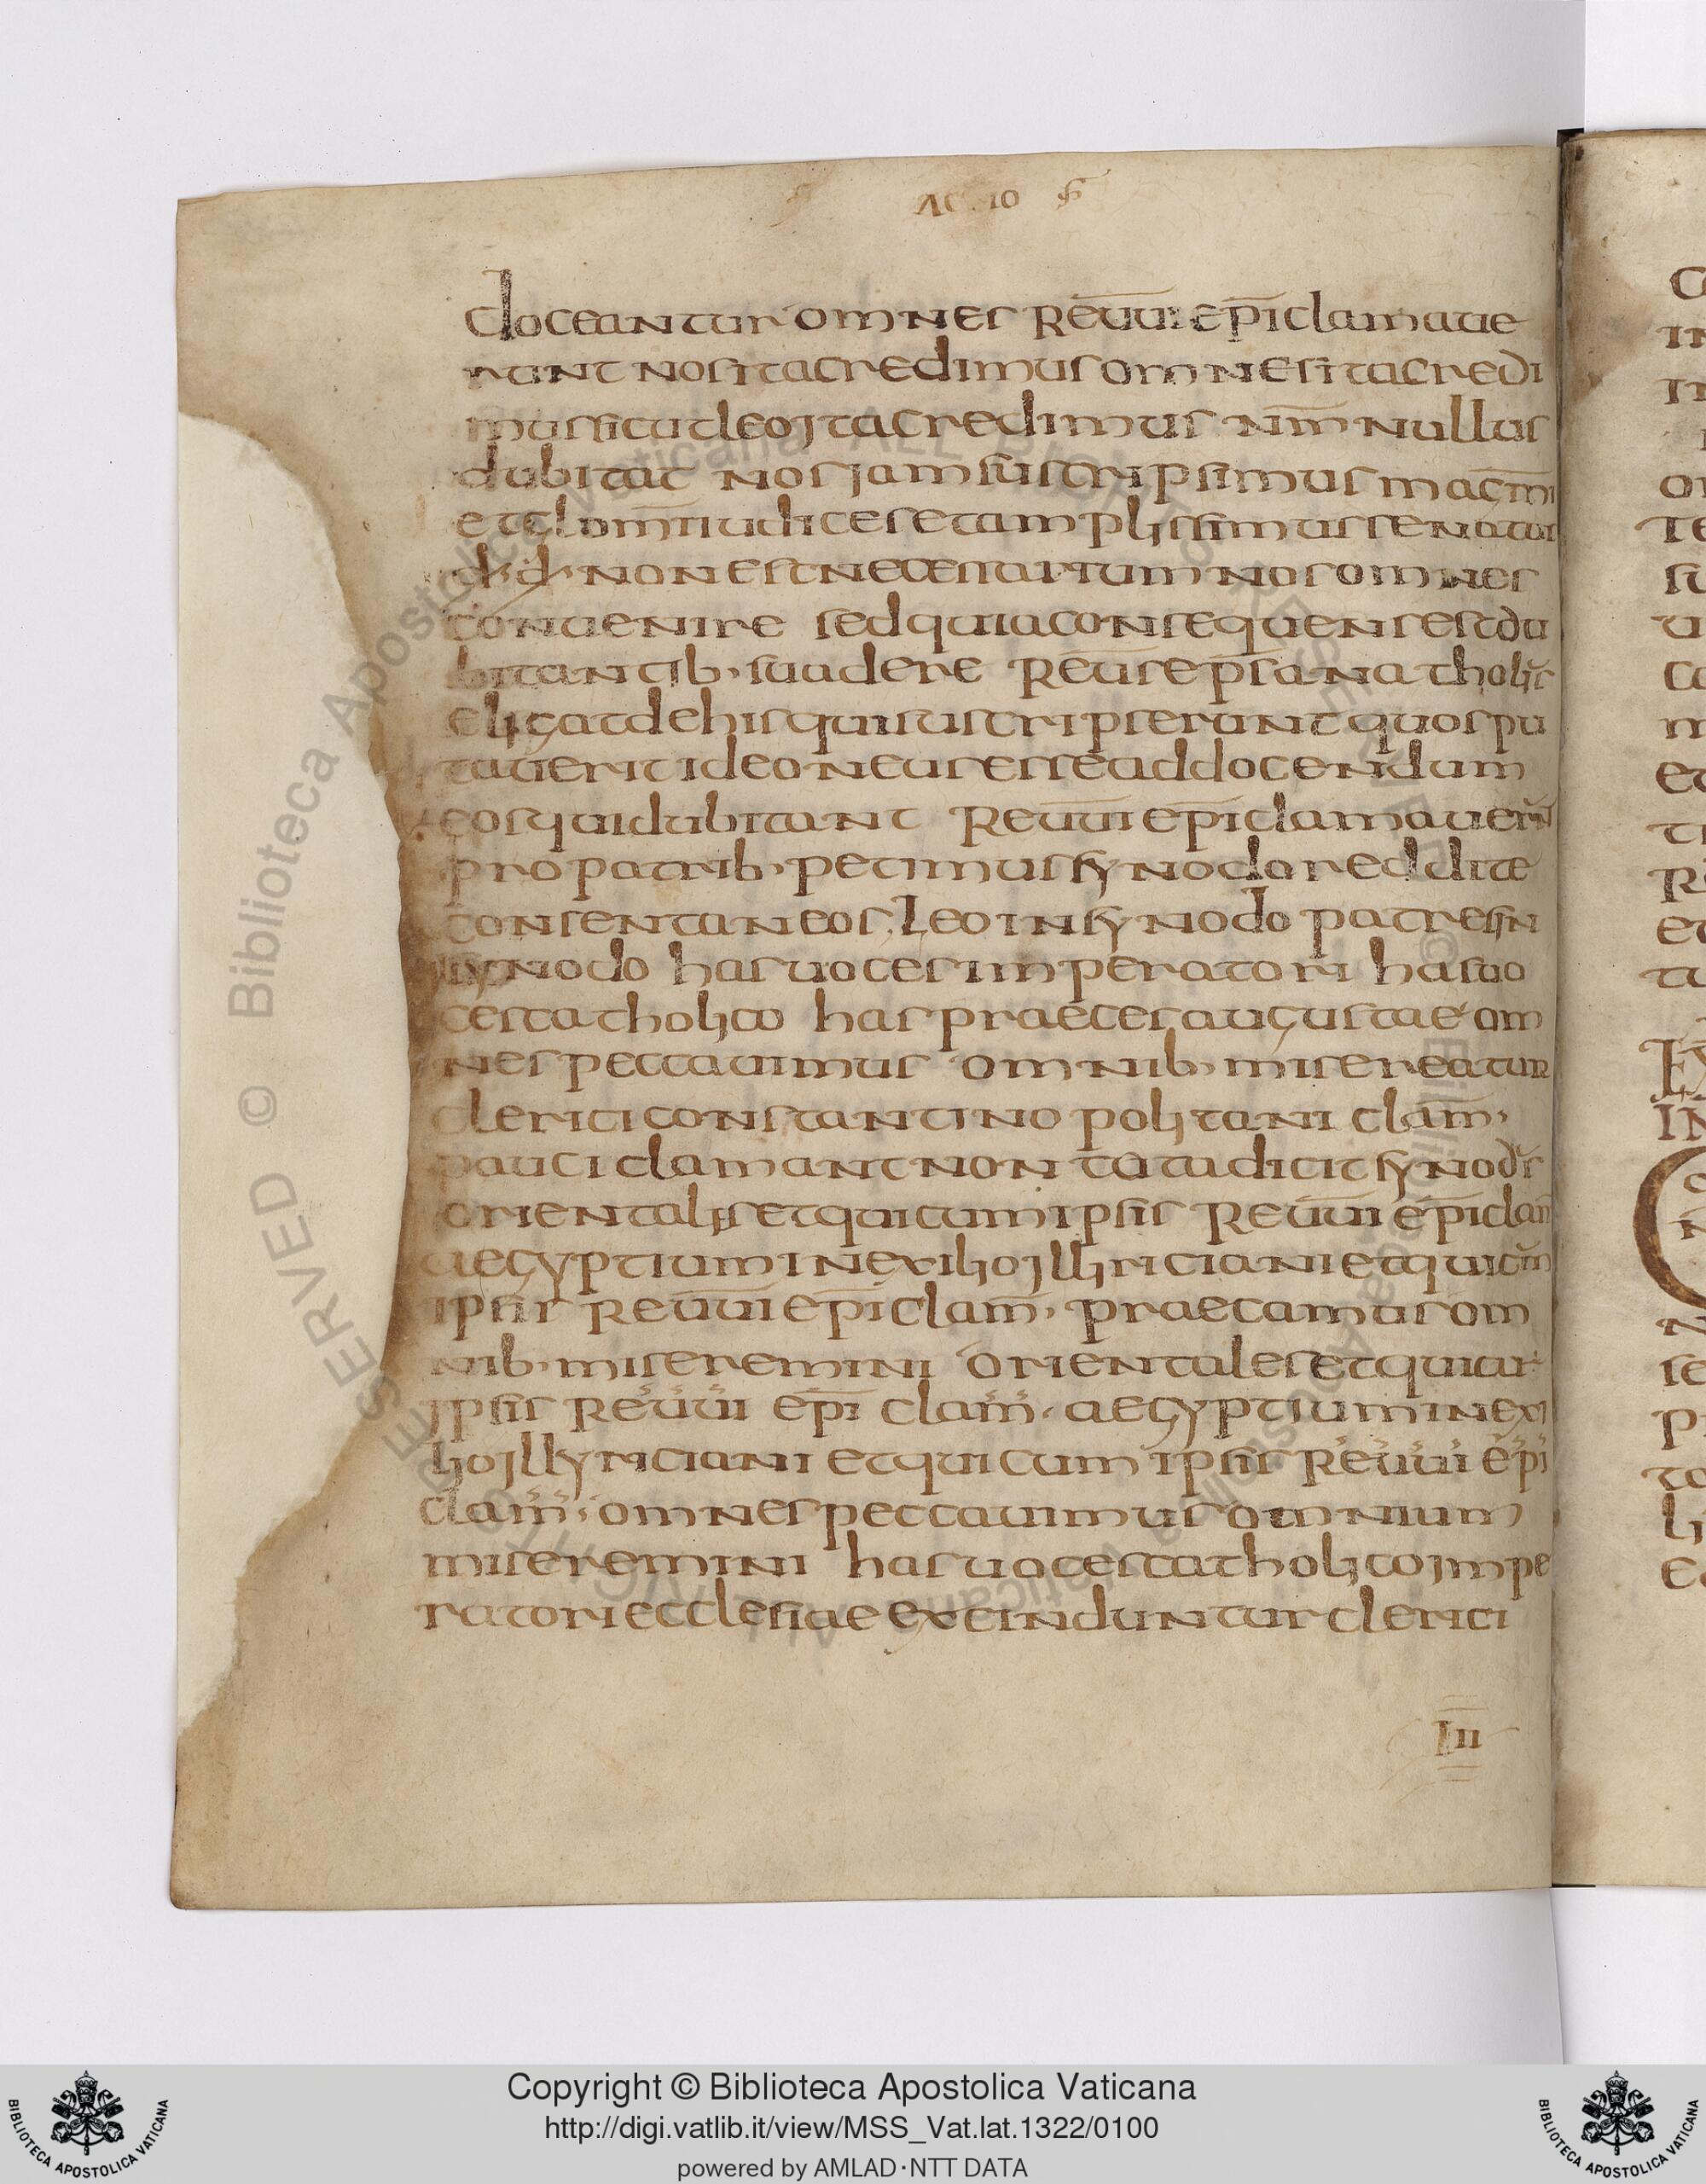 ACTIO
doceantur omnes Reuu̅i̅ ep̅i clamaue
runt nos ita credimus omnes ita credi
mus sicut leo ita credimus nm̅ nullus
dubitat nos iam suscripsimus magm̅
et glom̅ iudices et amplissimus senatus
d·d· non est necessarium nos omnes
conuenire sed quia consequens est du
bitantib· suadere Reu̅s ep̅s anatholis
eligat de his qui suscripserunt quos pu
tauerit ideoneus esse ad docendum
eos qui dubitant Reu̅u̅i ep̅i clamauer̅
pro patrib· petimus synodo reddite
consentaneos Leo in synodo patres in
synodo has uoces imperatori has uo
ces catholico has praeces augustae om
nes peccauimus omnib· misereatur
clerici constantinopolitani clam̅·
pauci clamant non tota dicit synodus
orientales et qui cum ipsis Reu̅u̅i ep̅i clam̅
aegyptium in exilio illiriciani et qui cum
ipsis Reu̅u̅i ep̅i clam̅· praecamus om
nib· miseremini orientales et qui cu
ipsis Reu̅u̅i ep̅i clam̅· aegyptium in exi
lio illyriciani et qui cum ipsis Reu̅u̅i ep̅i
clam̅· omnes peccauimus omnium
miseremini has uoces catholico impe
ratori ecclesiae excinduntur clerici
III
Copyright © Biblioteca Apostolica Vaticana
http://digi.vatlib.it/view/MSS_Vat.lat.1322/0100
powered by AMLAD·NTT DATA
BIBLIOTECA APOSTOLICA VATICANA
BIBLIOTECA APOSTOLICA VATICANA